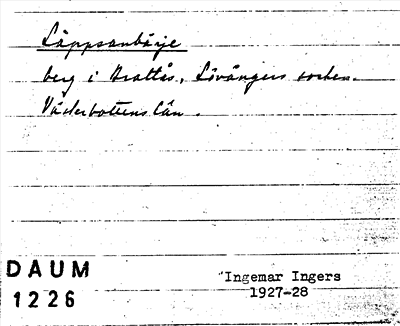 Läppsanbärje
berg i Brattås, Lövångers socken.
Västerbottens län.
DAUM
1226
Ingemar Ingers
1927-28